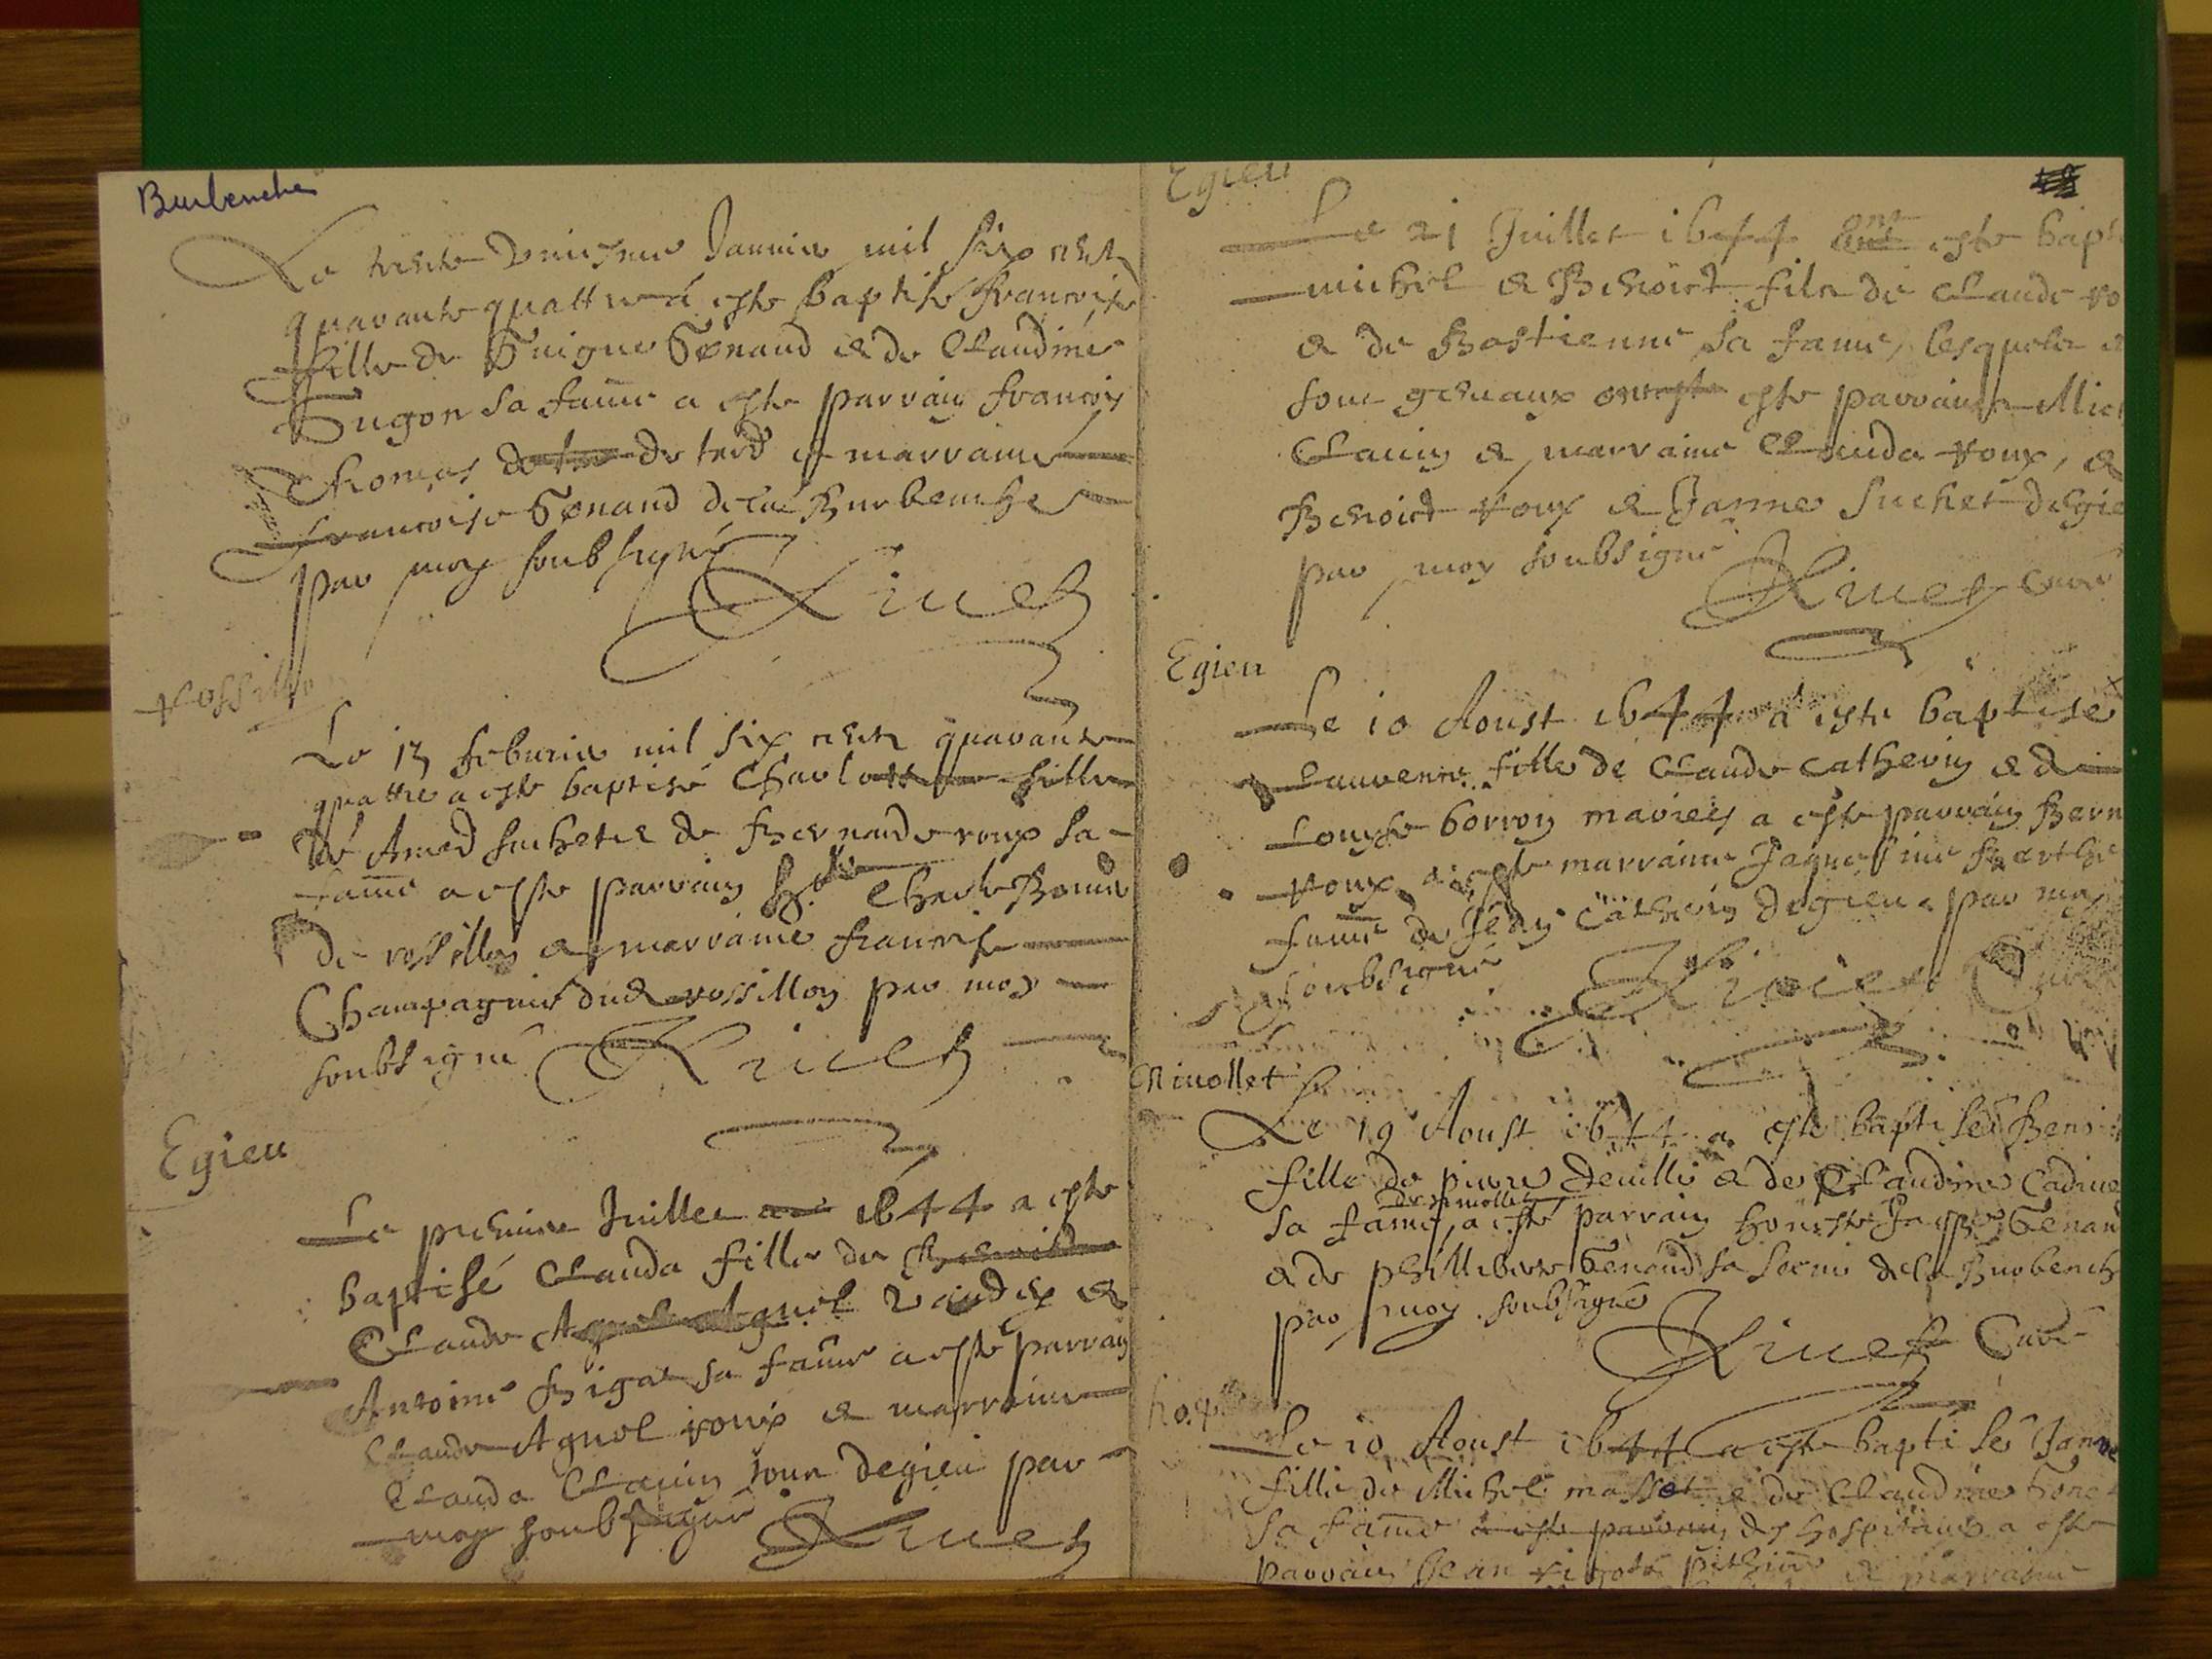 Burbenche
Le trente uniesme Januier mil six cent
quarante quattre a esté baptisée francoise
fille de Guigue Genand & de Claudine
Hugon sa fame a este parrain francois
Thomas de et marraine
francoise Genand de la Burbenche
par moy soubsigné
Riuet
Rossillon
Le 13 feburier mil six cent quarante
quattre a este baptisé Charlotte fille
de Amed suchet & de Bernarde roux sa
fame a este parrain Charle
de rossillon & marraine francoise
Champagnie dud rossillon par moy
soubsigné Riuet
Egieu
Le premier Juillet 1644 a este
baptisé Clauda fille de
Claude Agnel &
Antoine sa fame a esté parrain
Claude Agnel roux & marraine
Clauda Clauin tous degieu par
moy soubsigné Riuet
Egieu
Le 21 Juillet 1644 ont este bapt
michel & Benoict filz de Claude ro
& de Bastienne sa fame, lesquelz
sont gemaux este parrains Mic
Clauin & marraine Clauda roux, &
Benoict roux & Janne suchet degie
par moy soubsigné
Riuet Curé
Egieu
Le 10 Aoust 1644 a este baptisé
Laurence fille de Claude Catherin & de
Louyse borron mariés a este parrain Bern
roux, & este marraine Jaquessine
fame de Catherin degieu par moy
soubsigné
Riuet Curé
Riuollet
Le 19 Aoust 1644 a este baptisée Benoi
fille de pierre & de Claudine
de riuollet
sa fame, a esté parrain honeste Genan
& de phillibere Genand sa de la Burbench
par moy soubsigné
Riuet Curé
Le 10 Aoust 1644 a este baptisée Janne
fille de Michel masset & de Claudine
sa fame a este parrain des hospitaux a este
parrain Jean & marraine